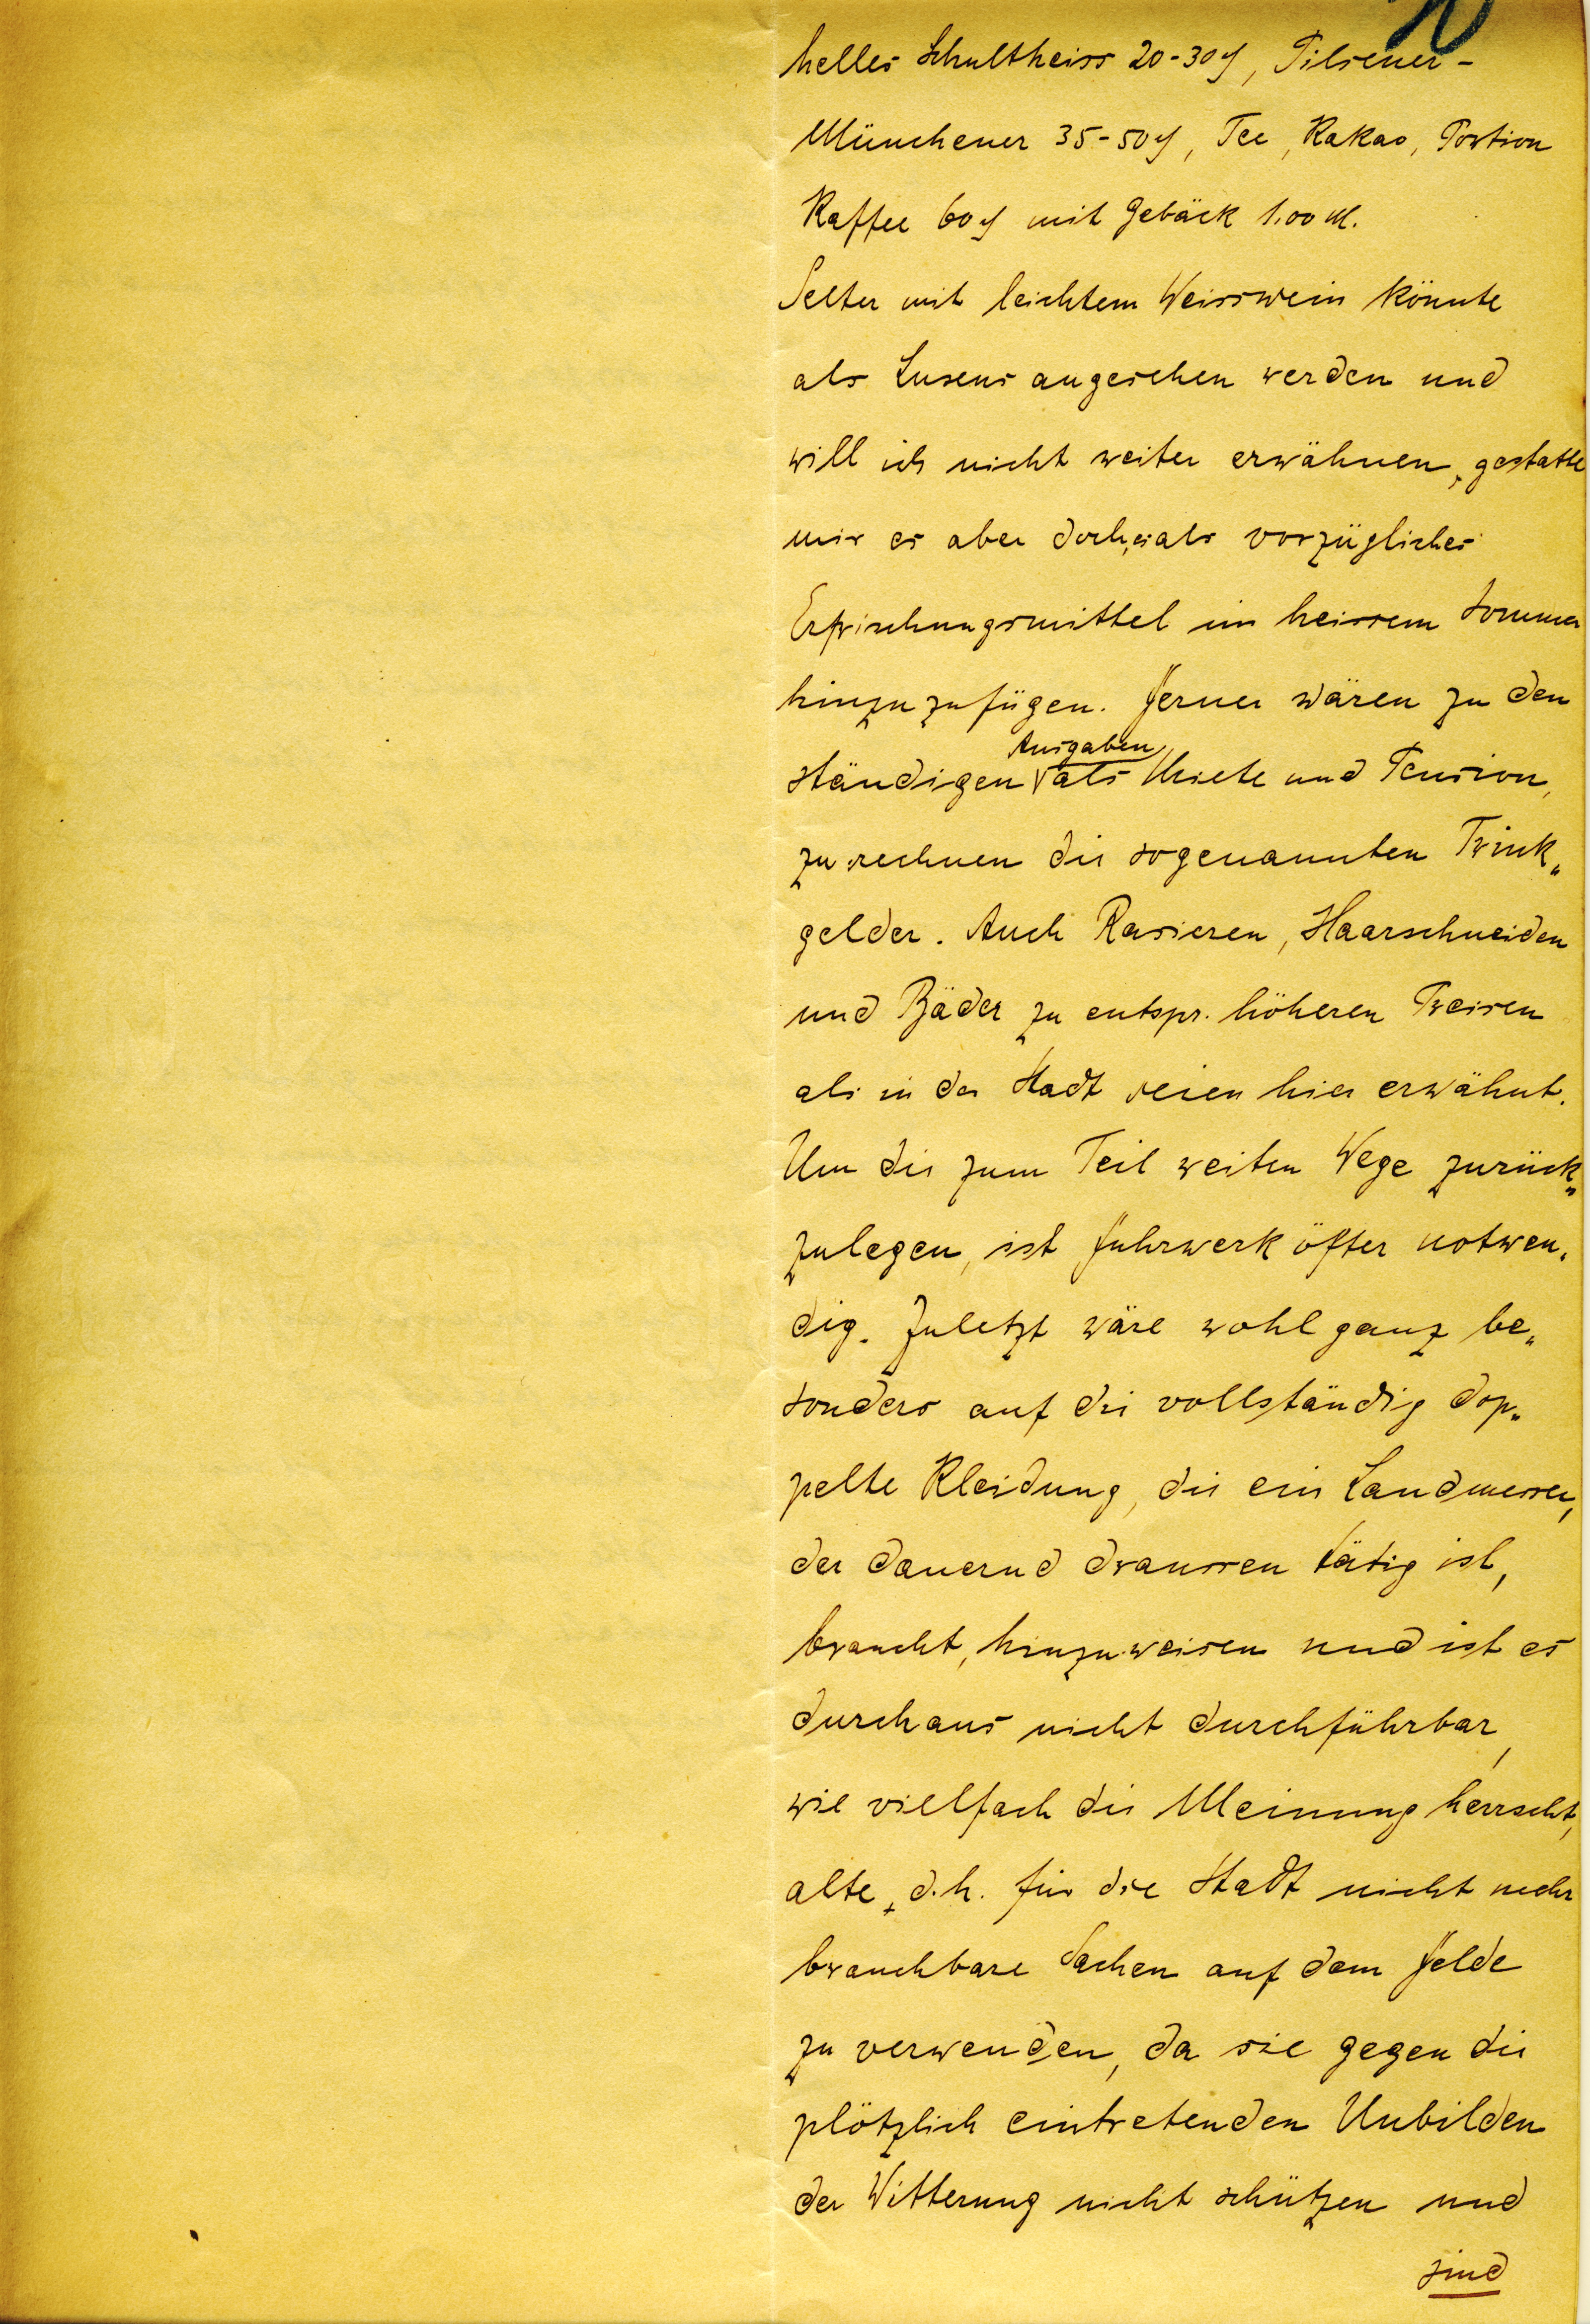 helles Schultheiss 20-30 ₰, Pilsener-
Münchener 35-50 ₰, Tee, Kakao, Portion
Kaffee 60 ₰ mit Gebäck 1.00 M.
Selter mit leichtem Weisswein könnte
als Luxus angesehen werden und
will ich nicht weiter erwähnen, gestatte
mir es aber doch, es als vorzügliches
Erfrischungsmittel im heissem Sommer
hinzuzufügen. Ferner wären zu den
Ausgaben
ständigen als Miete und Pension,
zu rechnen die sogenannten Trink„
gelder. Auch Rasieren, Haarschneiden
und Bäder zu entspr. höheren Preisen
als in der Stadt seien hier erwähnt.
Um die zum Teil weiten Wege zurück„
zulegen, ist Fuhrwerk öfter notwen„
dig. Zuletzt wäre wohl ganz be„
sonders auf die vollständig dop„
pelte Kleidung, die ein Landmesser,
der dauernd draussen tätig ist,
braucht, hinzuweisen und ist es
durchaus nicht durchführbar,
wie vielfach die Meinung herrscht,
alte, d.h. für die Stadt nicht mehr
brauchbare Sachen auf dem Felde
zu verwenden, da sie gegen die
plötzlich eintretenden Unbilden
der Witterung nicht schützen und
sind